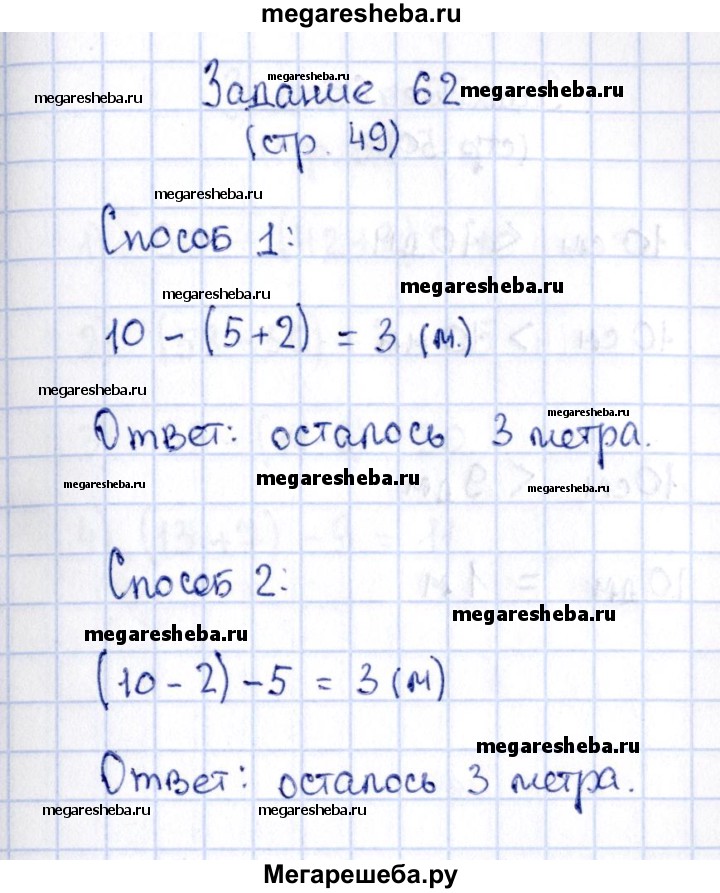 megaresheba.ru
megaresheba.ru
megaresheba.ru Задание 62 megaresheba.ru
(стр. 49)
megaresheba.ru
Способ 1:
megaresheba.ru megaresheba.ru
10 - (5+2) = 3 (м.)
megaresheba.ru
megaresheba.ru
Ответ: осталось 3 метра.
megaresheba.ru megaresheba.ru megaresheba.ru
Способ 2:
megaresheba.ru
megaresheba.ru
(10-2)-5 = 3 (м)
megaresheba.ru
Ответ: осталось 3 метра.
megaresheba.ru megaresheba.ru
Мегарешеба.ру